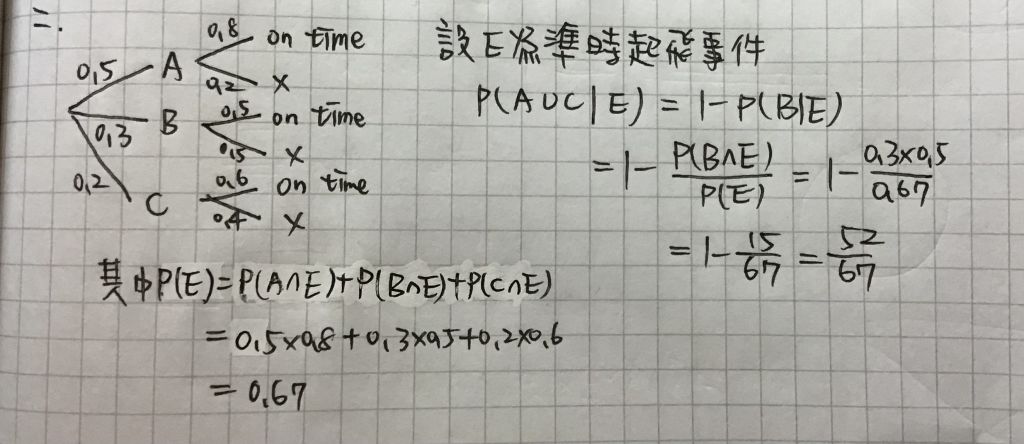 二.
0.8 on time
0.5 A
0.2 X
0.5 on time
0.3 B
0.5 X
0.2 0.6 on time
C
0.4 X
設E為準時起飛事件
P(A∪C|E) = 1-P(B|E)
= 1- P(B∩E)/P(E) = 1- 0.3×0.5/0.67
= 1- 15/67 = 52/67
其中P(E)=P(A∩E)+P(B∩E)+P(C∩E)
= 0.5×0.8+0.3×0.5+0.2×0.6
= 0.67